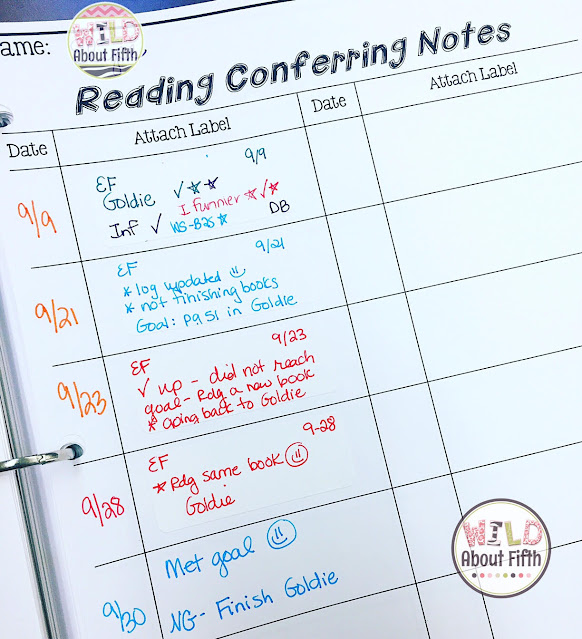 ame:
WILD
About Fifth
Reading Conferring Notes
Date Attach Label Date Attach Label
9/9
EF 9/9
Goldie ✓☆☆
I Funnier ☆✓☆
Inf ✓ WS-B25 ☆ DB
9/21
EF 9/21
* log updated
* not finishing books
Goal: pg 51 in Goldie
9/23
EF 9/23
✓ up - did not reach
goal - Rdg a new book
* Going back to Goldie
9/28
EF 9-28
* Rdg same book
Goldie
9/30
Met goal
NG- Finish Goldie
WILD
About Fifth